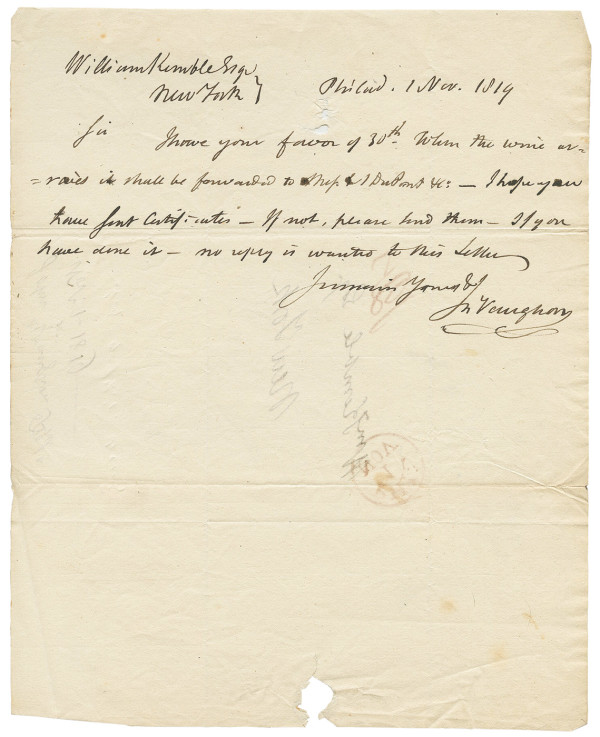 William Kemble Esqr
New York } Philad. 1 Nov. 1819
Sir I have your favor of 30th. When the wine ar=
=rives it shall be forwarded to Messrs DuPont &c. — I hope you
have sent Certificates — If not, please send them — If you
have done it — no reply is wanted to this Letter
I remain Yours &c
Jn Vaughan